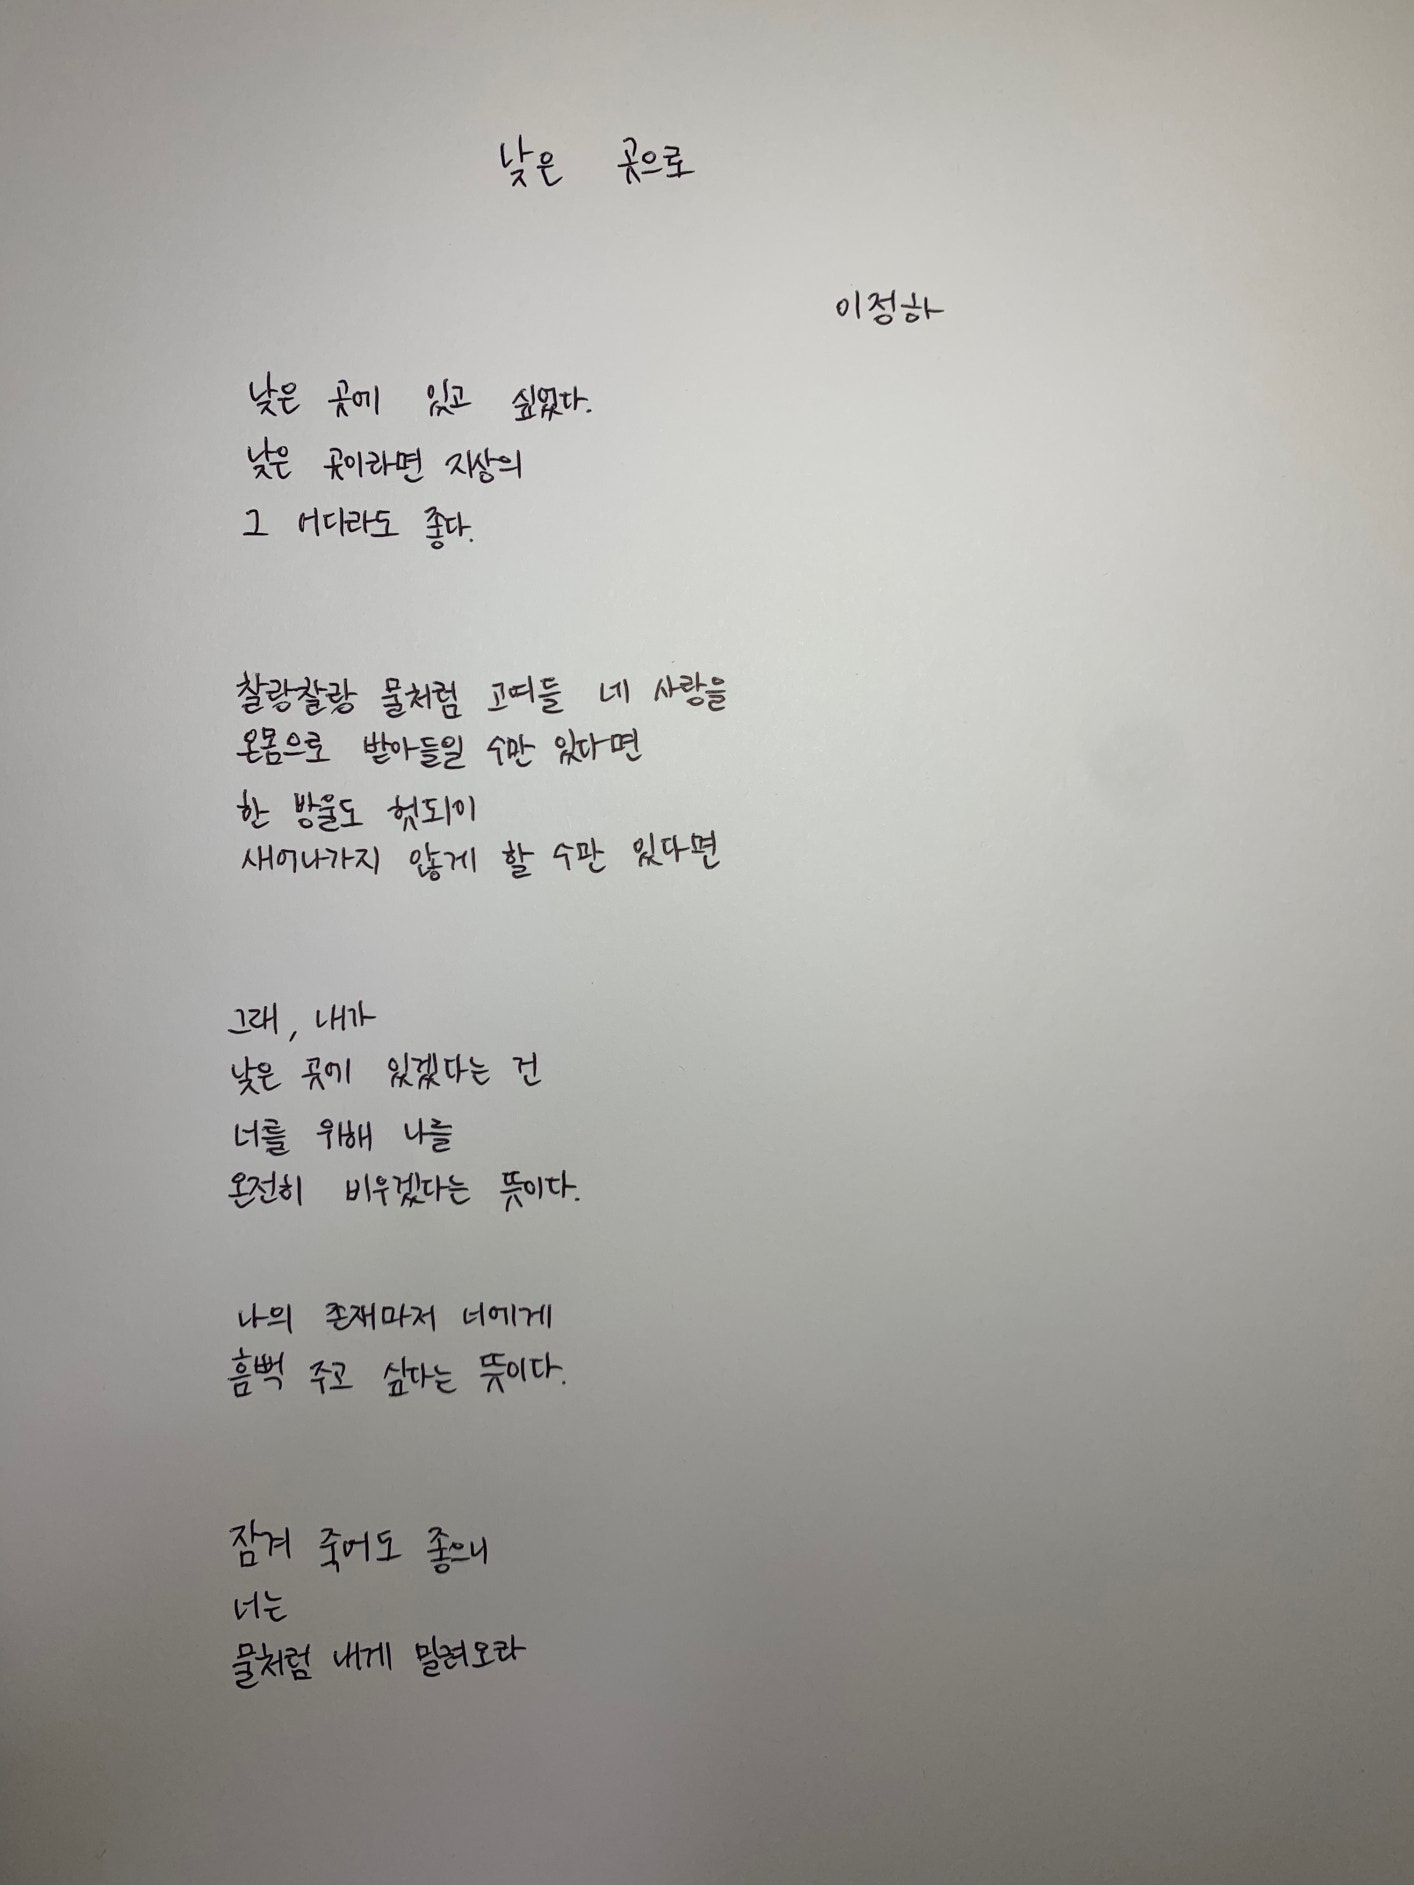 낮은 곳으로
이정하
낮은 곳에 있고 싶었다.
낮은 곳이라면 지상의
그 어디라도 좋다.
찰랑찰랑 물처럼 고여들 네 사랑을
온몸으로 받아들일 수만 있다면
한 방울도 헛되이
새어나가지 않게 할 수만 있다면
그래, 내가
낮은 곳에 있겠다는 건
너를 위해 나를
온전히 비우겠다는 뜻이다.
나의 존재마저 너에게
흠뻑 주고 싶다는 뜻이다.
잠겨 죽어도 좋으니
너는
물처럼 내게 밀려오라